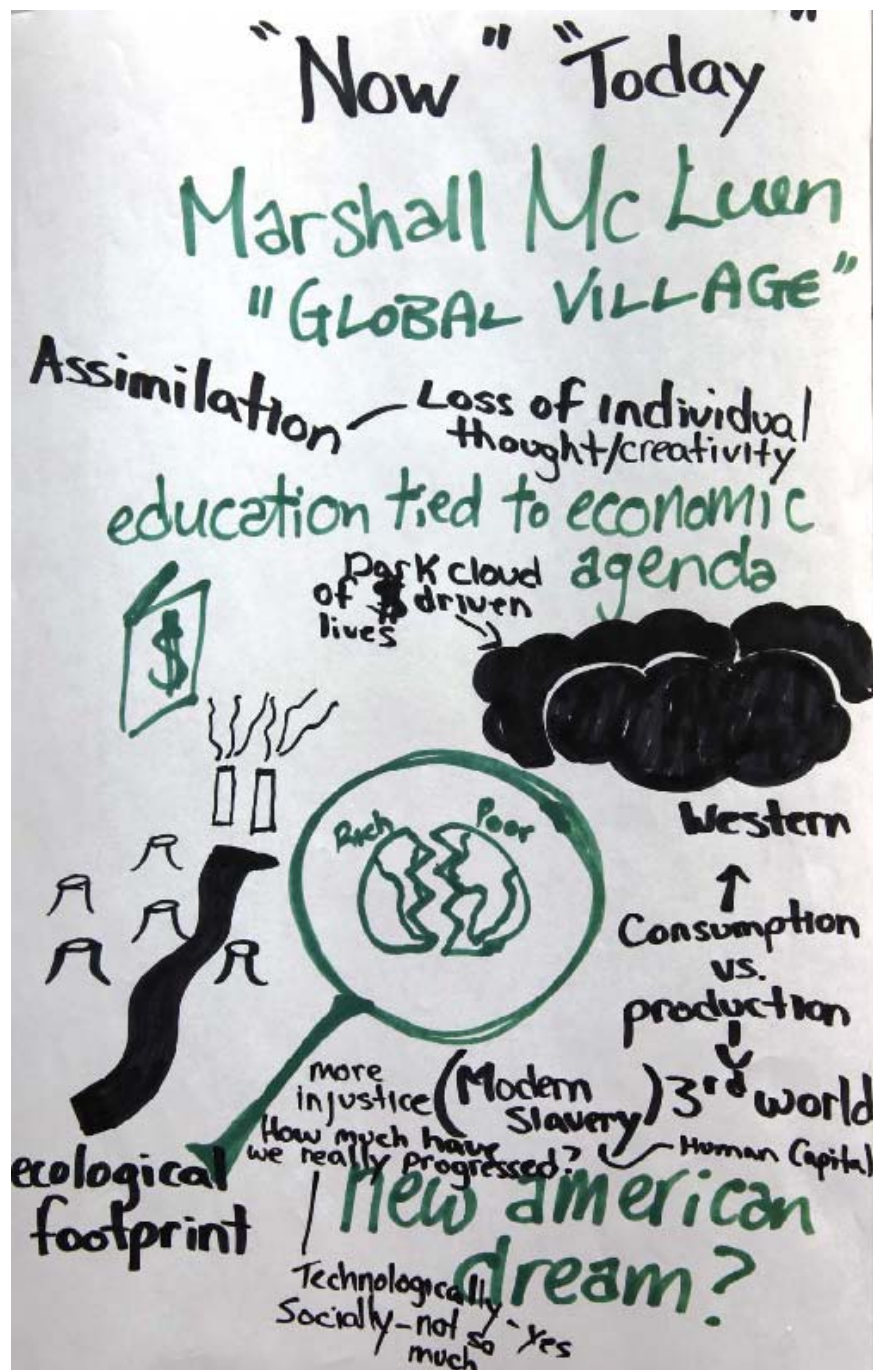 "Now" "Today"
Marshall Mc Luen
"GLOBAL VILLAGE"
Assimilation
Loss of individual
thought/creativity
education tied to economic
agenda
Dark cloud
of $ driven
lives
$
Rich
Poor
Western
Consumption
vs.
production
3rd world
more
injustice
(Modern
Slavery)
Human Capital
How much have
we really progressed?
ecological
footprint
new american
dream?
Technologically - Yes
Socially - not so
much